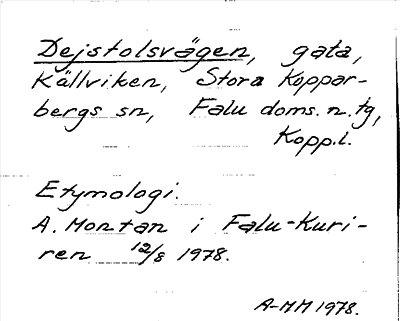 Dejstolsvägen, gata,
Källviken, Stora Koppar-
bergs sn, Falu doms. n. tg,
Kopp.l.
Etymologi.
A. Montan i Falu-Kuri-
ren 12/8 1978.
A-MM 1978.